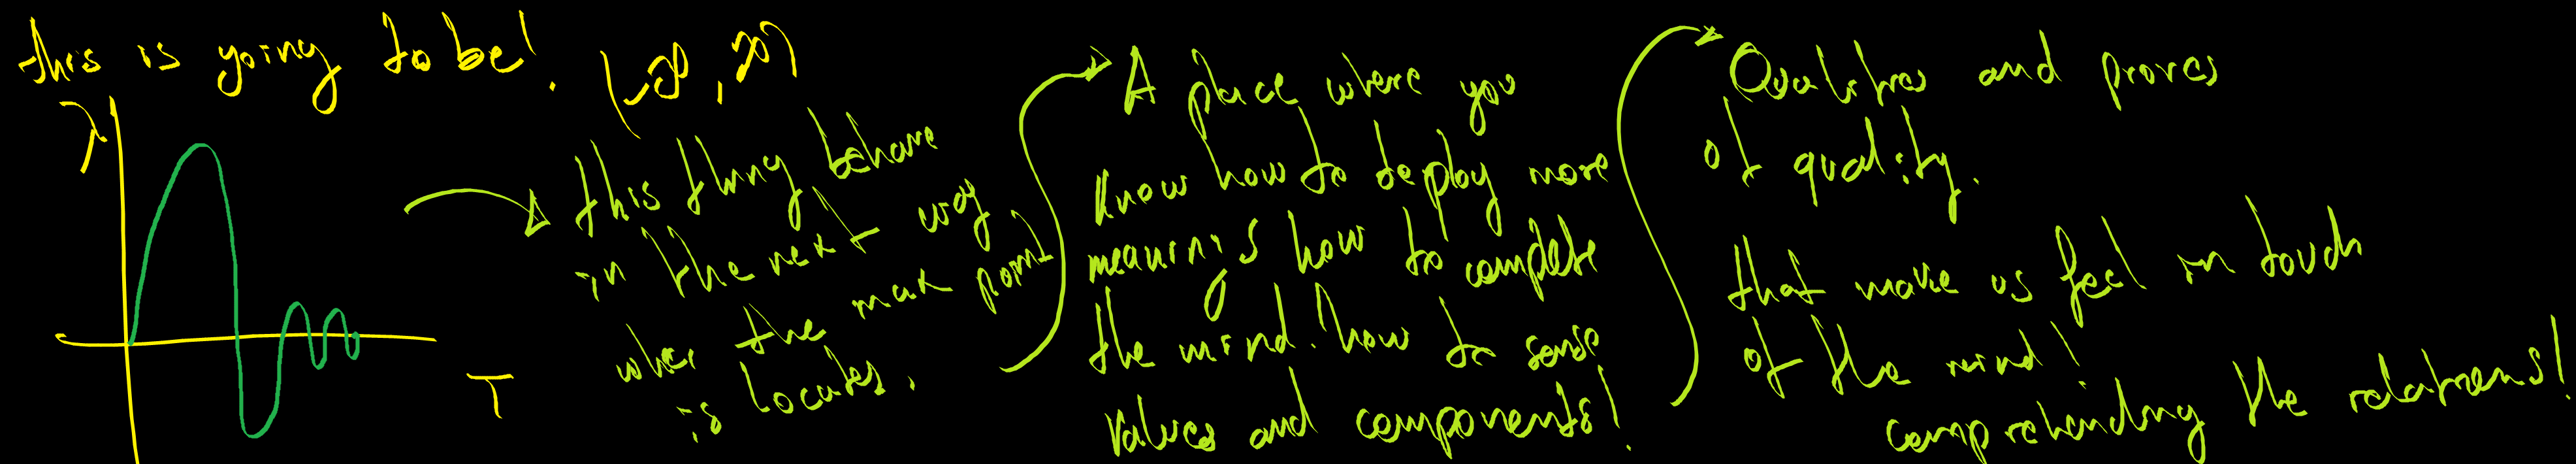 this is going to be! (-∞, ∞)
λ
T
this thing behave
in the next way
when the max point
is locates.
A place where you
know how to deploy more
meanings how to complete
the mind. how to sense
values and components!
Qualities and proves
of quality.
that make us feel in touch
of the mind!
comprehending the relations!